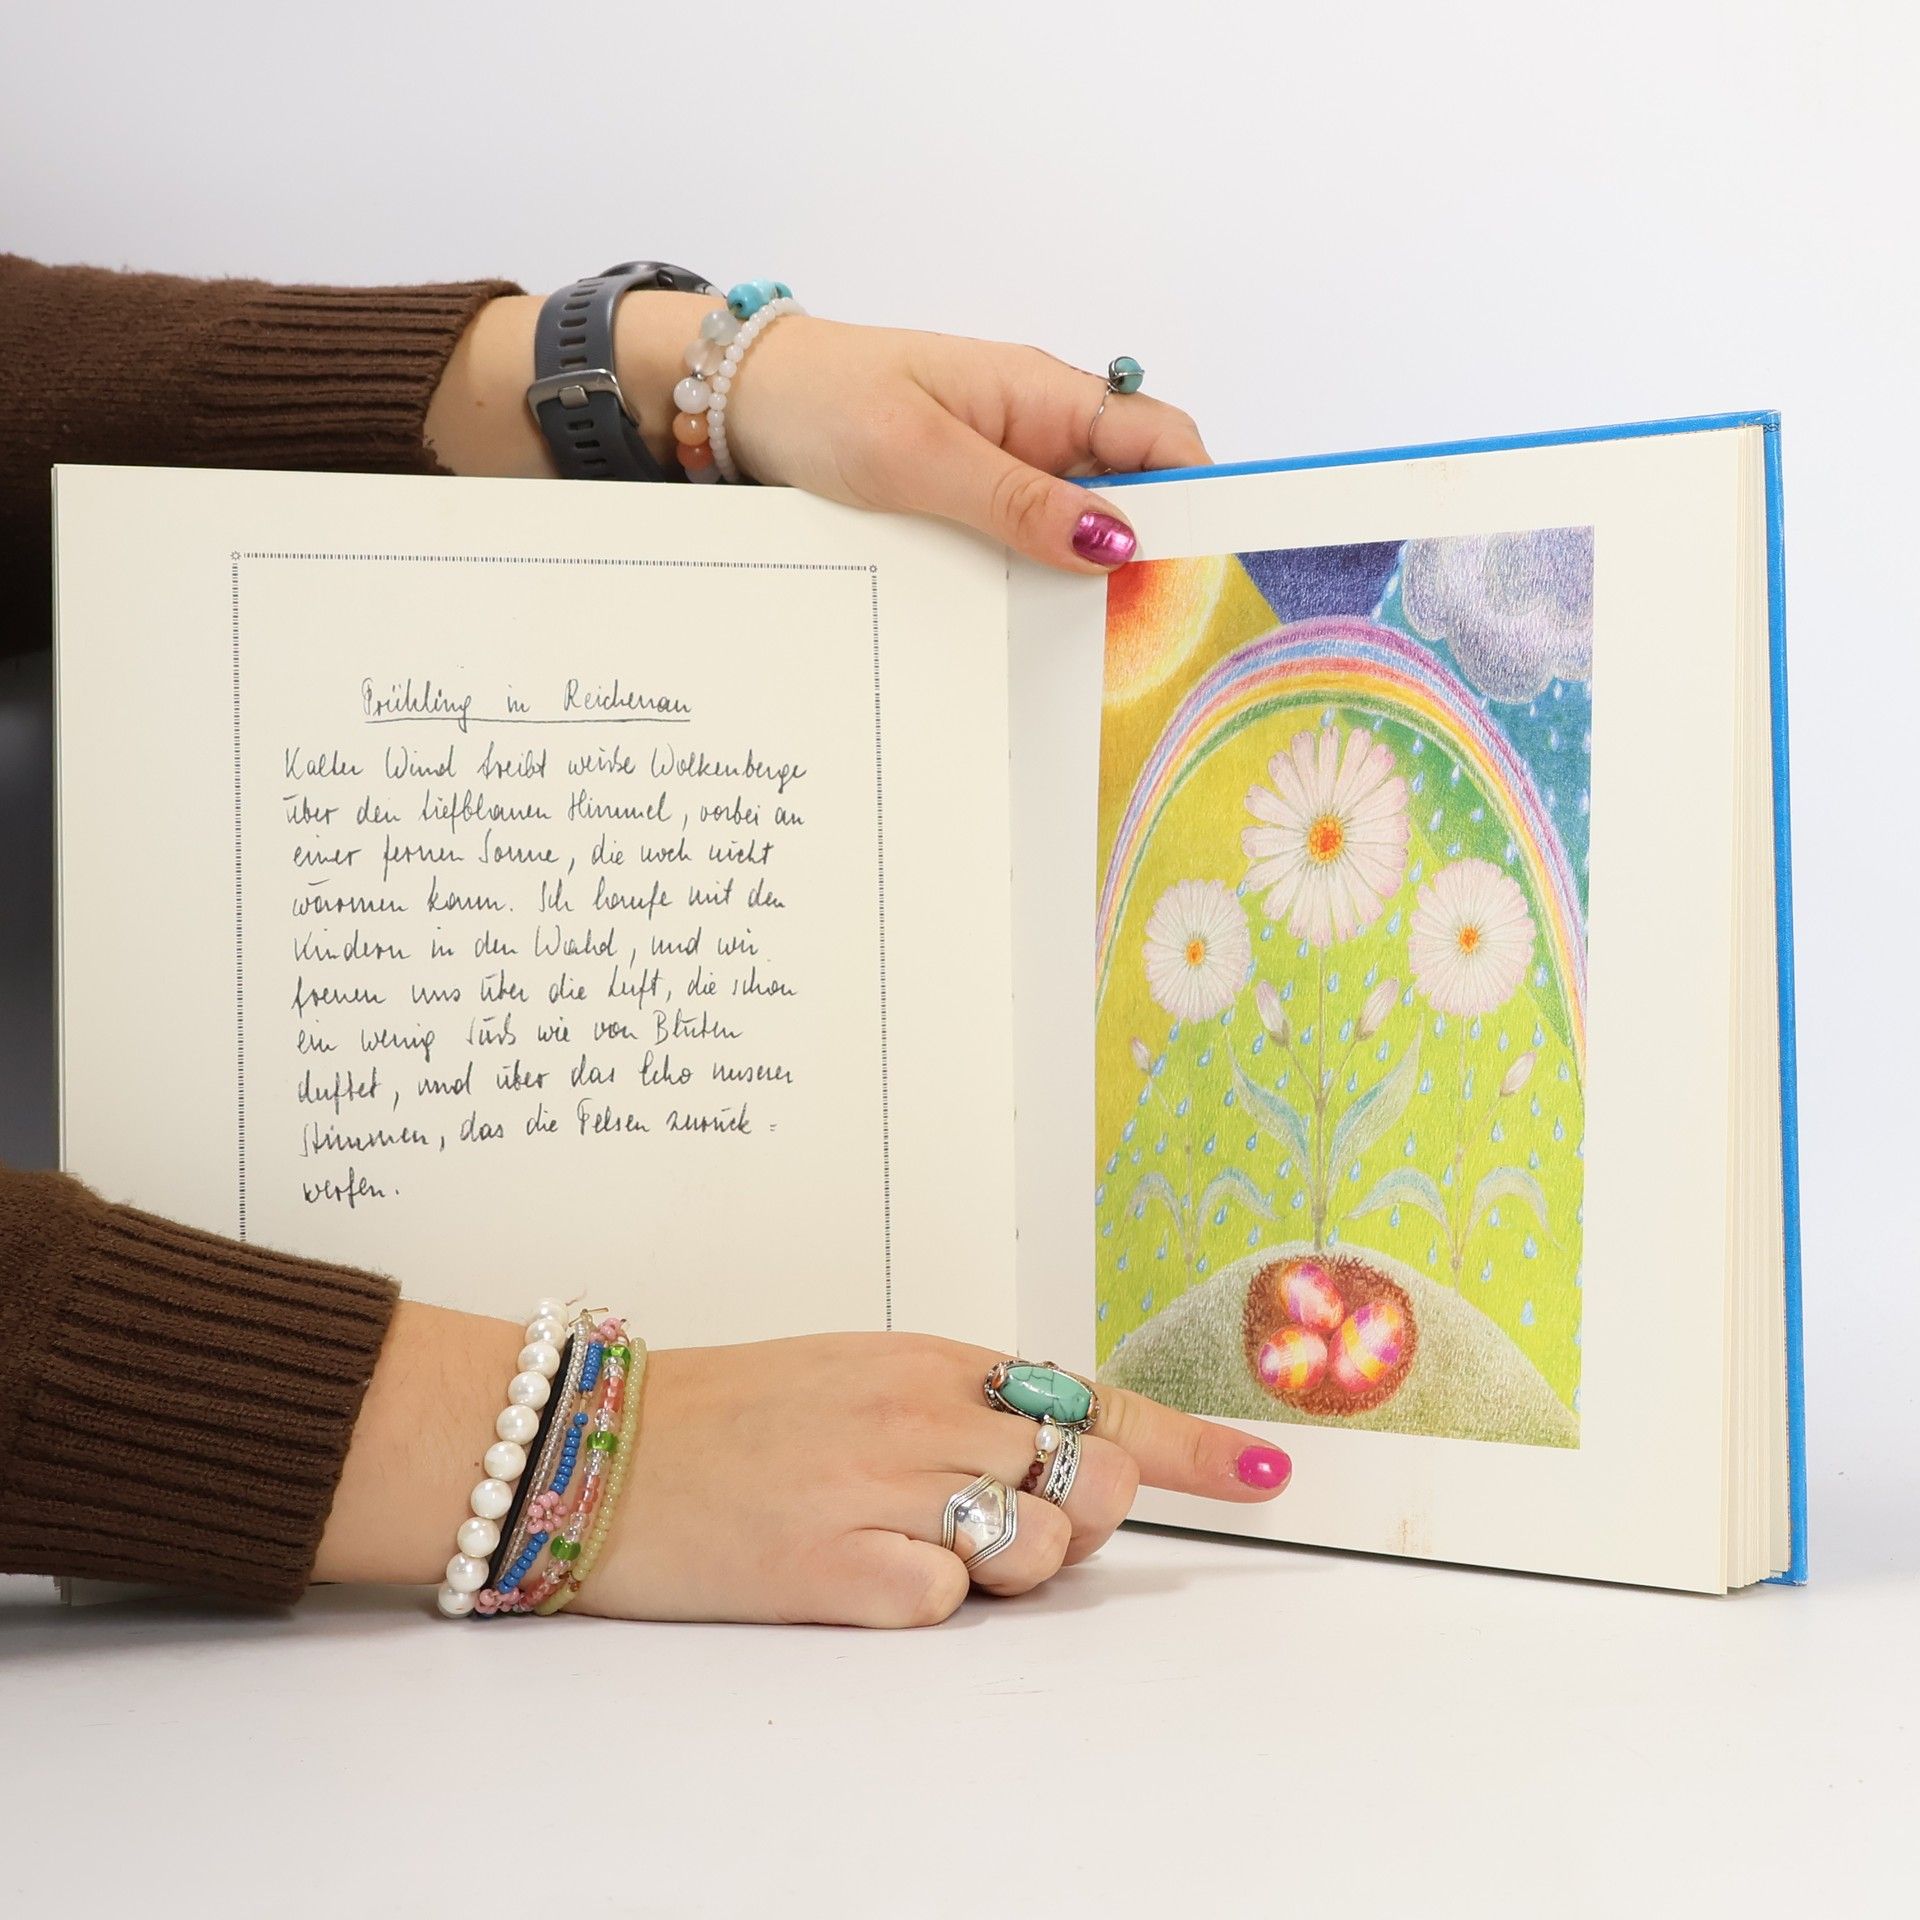 Frühling in Reichenau
Kalter Wind treibt weiße Wolkenberge
über den tiefblauen Himmel, vorbei an
einer fernen Sonne, die noch nicht
wärmen kann. Ich laufe mit den
Kindern in den Wald, und wir
freuen uns über die Luft, die schon
ein wenig süß wie von Blüten
duftet, und über das Echo unserer
Stimmen, das die Felsen zurück=
werfen.